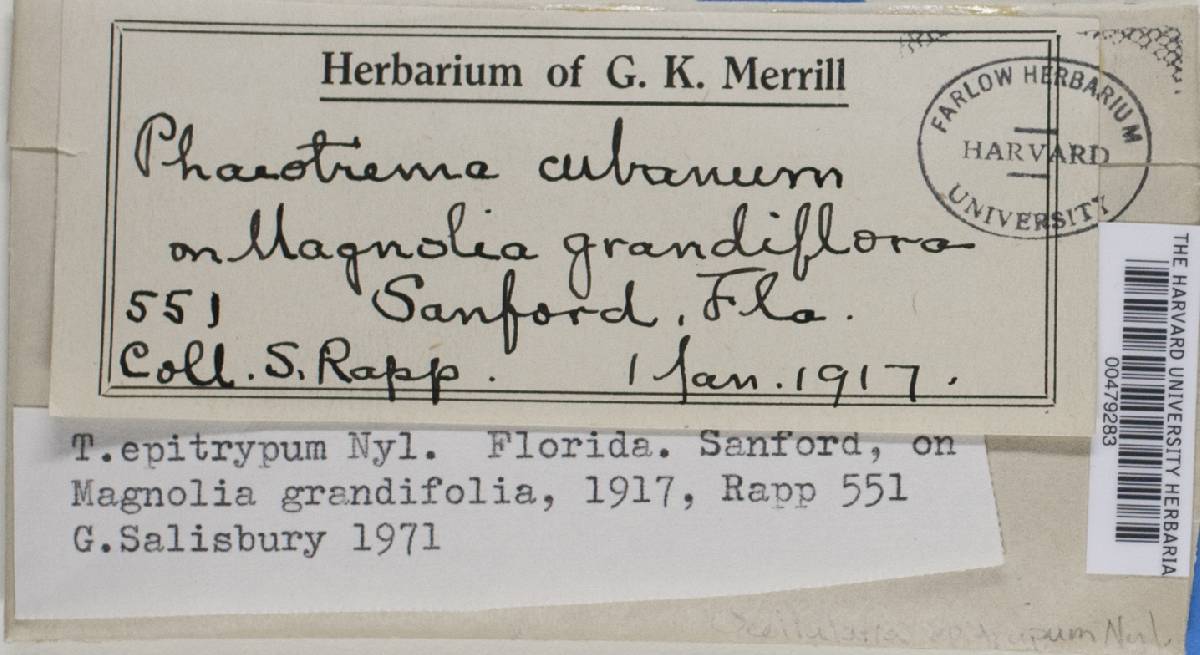 Herbarium of G. K. Merrill
Phaeotrema cubanum
on Magnolia grandiflora
551 Sanford, Fla.
Coll. S. Rapp. 1 Jan. 1917.
FARLOW HERBARIUM
HARVARD
UNIVERSITY
THE HARVARD UNIVERSITY HERBARIA
00479283
T.epitrypum Nyl. Florida. Sanford, on
Magnolia grandifolia, 1917, Rapp 551
G.Salisbury 1971
epitrypum Nyl.